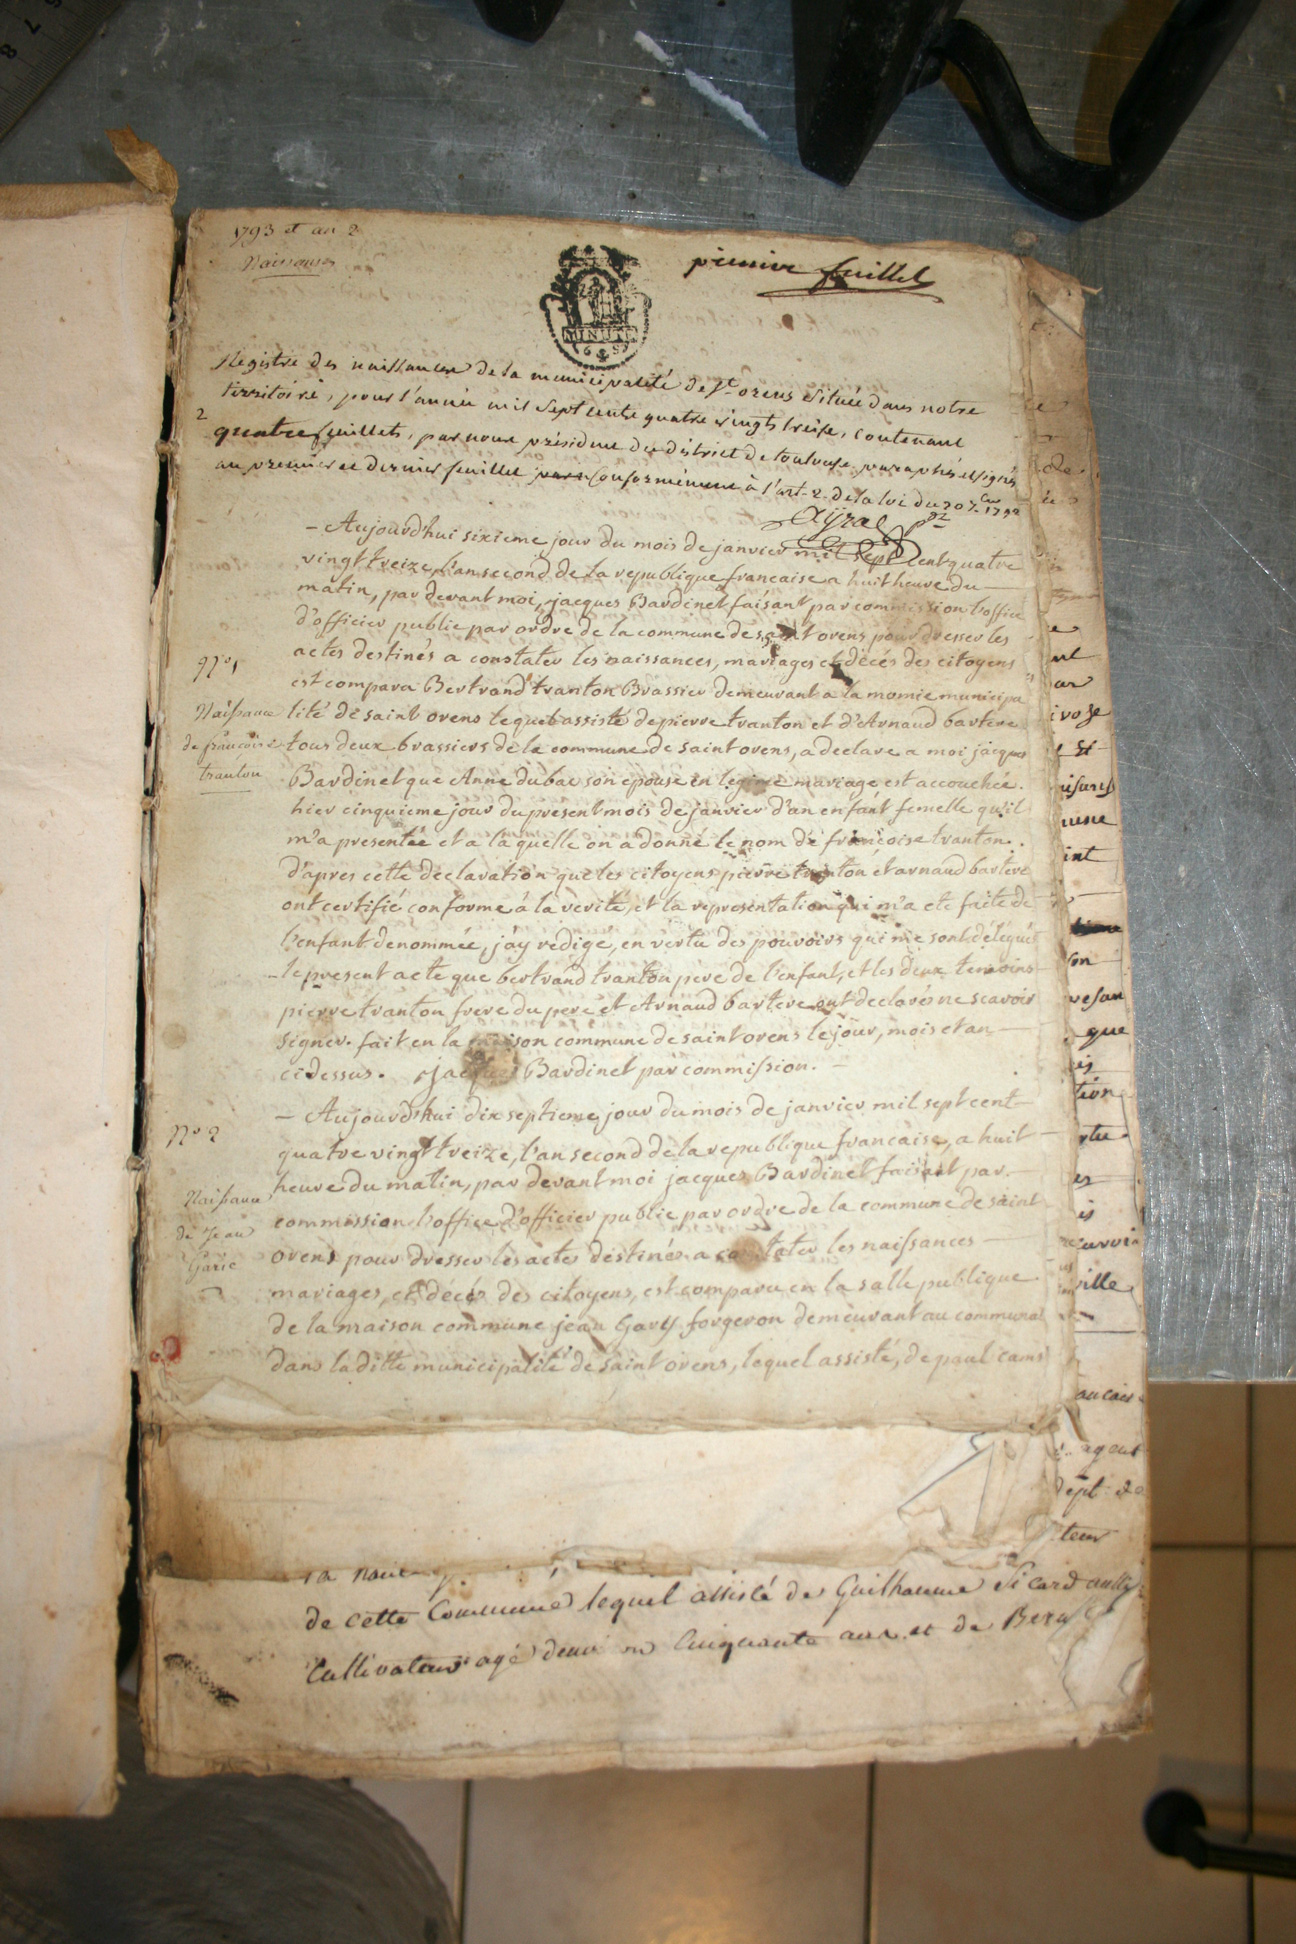 1793 et an 2
Naissances
premier feuillet
MINUTE
6 S
Registre des naissances de la municipalité de St. orens située dans notre
territoire, pour l'année mil sept cents quatre vingts treise, contenant
2
quatre feuillets, par nous président du district de toulouse, paraphés et signés
au premier et dernier feuillet conformément à l'art. 2 de la loi du 20 7bre 1792
Ayral pdt
– Aujourd'hui sixieme jour du mois de janvier mil sept cent quatre
vingt treize, l'an second de la republique francaise a huit heure du
matin, par devant moi, jacques Bardinet faisant par commission l'office
d'officier public par ordre de la commune de saint orens pour dresser les
actes destinés a constater les naissances, mariages et décés des citoyens
est compara Bertrand tranton Brassier demeurant a la memie municipa
lité de saint orens lequel assisté de pierre tranton et d'Arnaud bartere
tous deux brassiers de la commune de saint orens, a declare a moi jacques
Bardinet que Anne dubac son epouse en legime mariage est accouchée
hier cinquieme jour du present mois de janvier d'un enfant femelle qu'il
m'a presentée et a laquelle on a donné le nom de francoise tranton.
d'apres cette declaration que les citoyens pierre tranton et arnaud bartere
ont certifié conforme á la verité, et la representation qui m'a ete faite de
l'enfant denommée, j'ay rédigé, en vertu des pouvoirs qui me sont délégués
le present acte que bertrand tranton pere de l'enfant, et les deux temoins
pierre tranton frere du pere et Arnaud bartere ont declarés ne scavoir
signer. fait en la maison commune de saint orens le jour, mois et an
cidessus. jacques Bardinet par commission.
No 1
Naissance
de françoise
tranton
– Aujourd'hui dix septieme jour du mois de janvier mil sept cent
quatre vingt treize, l'an second de la republique francaise, a huit
heure du matin, par devant moi jacques Bardinet faisant par
commission l'office d'officier public par ordre de la commune de saint
orens pour dresser les actes destinés a constater les naissances
mariages, et décés des citoyens, est comparu en la salle publique
de la maison commune jean Gary forgeron demeurant au communal
dans la ditte municipalité de saint orens, lequel assisté, de paul cams
No 2
Naissance
de Jean
Garie
de cette Commune lequel assisté de Guilhaume Sicard
Cultivateur agé deuv on Cinquante ans et de